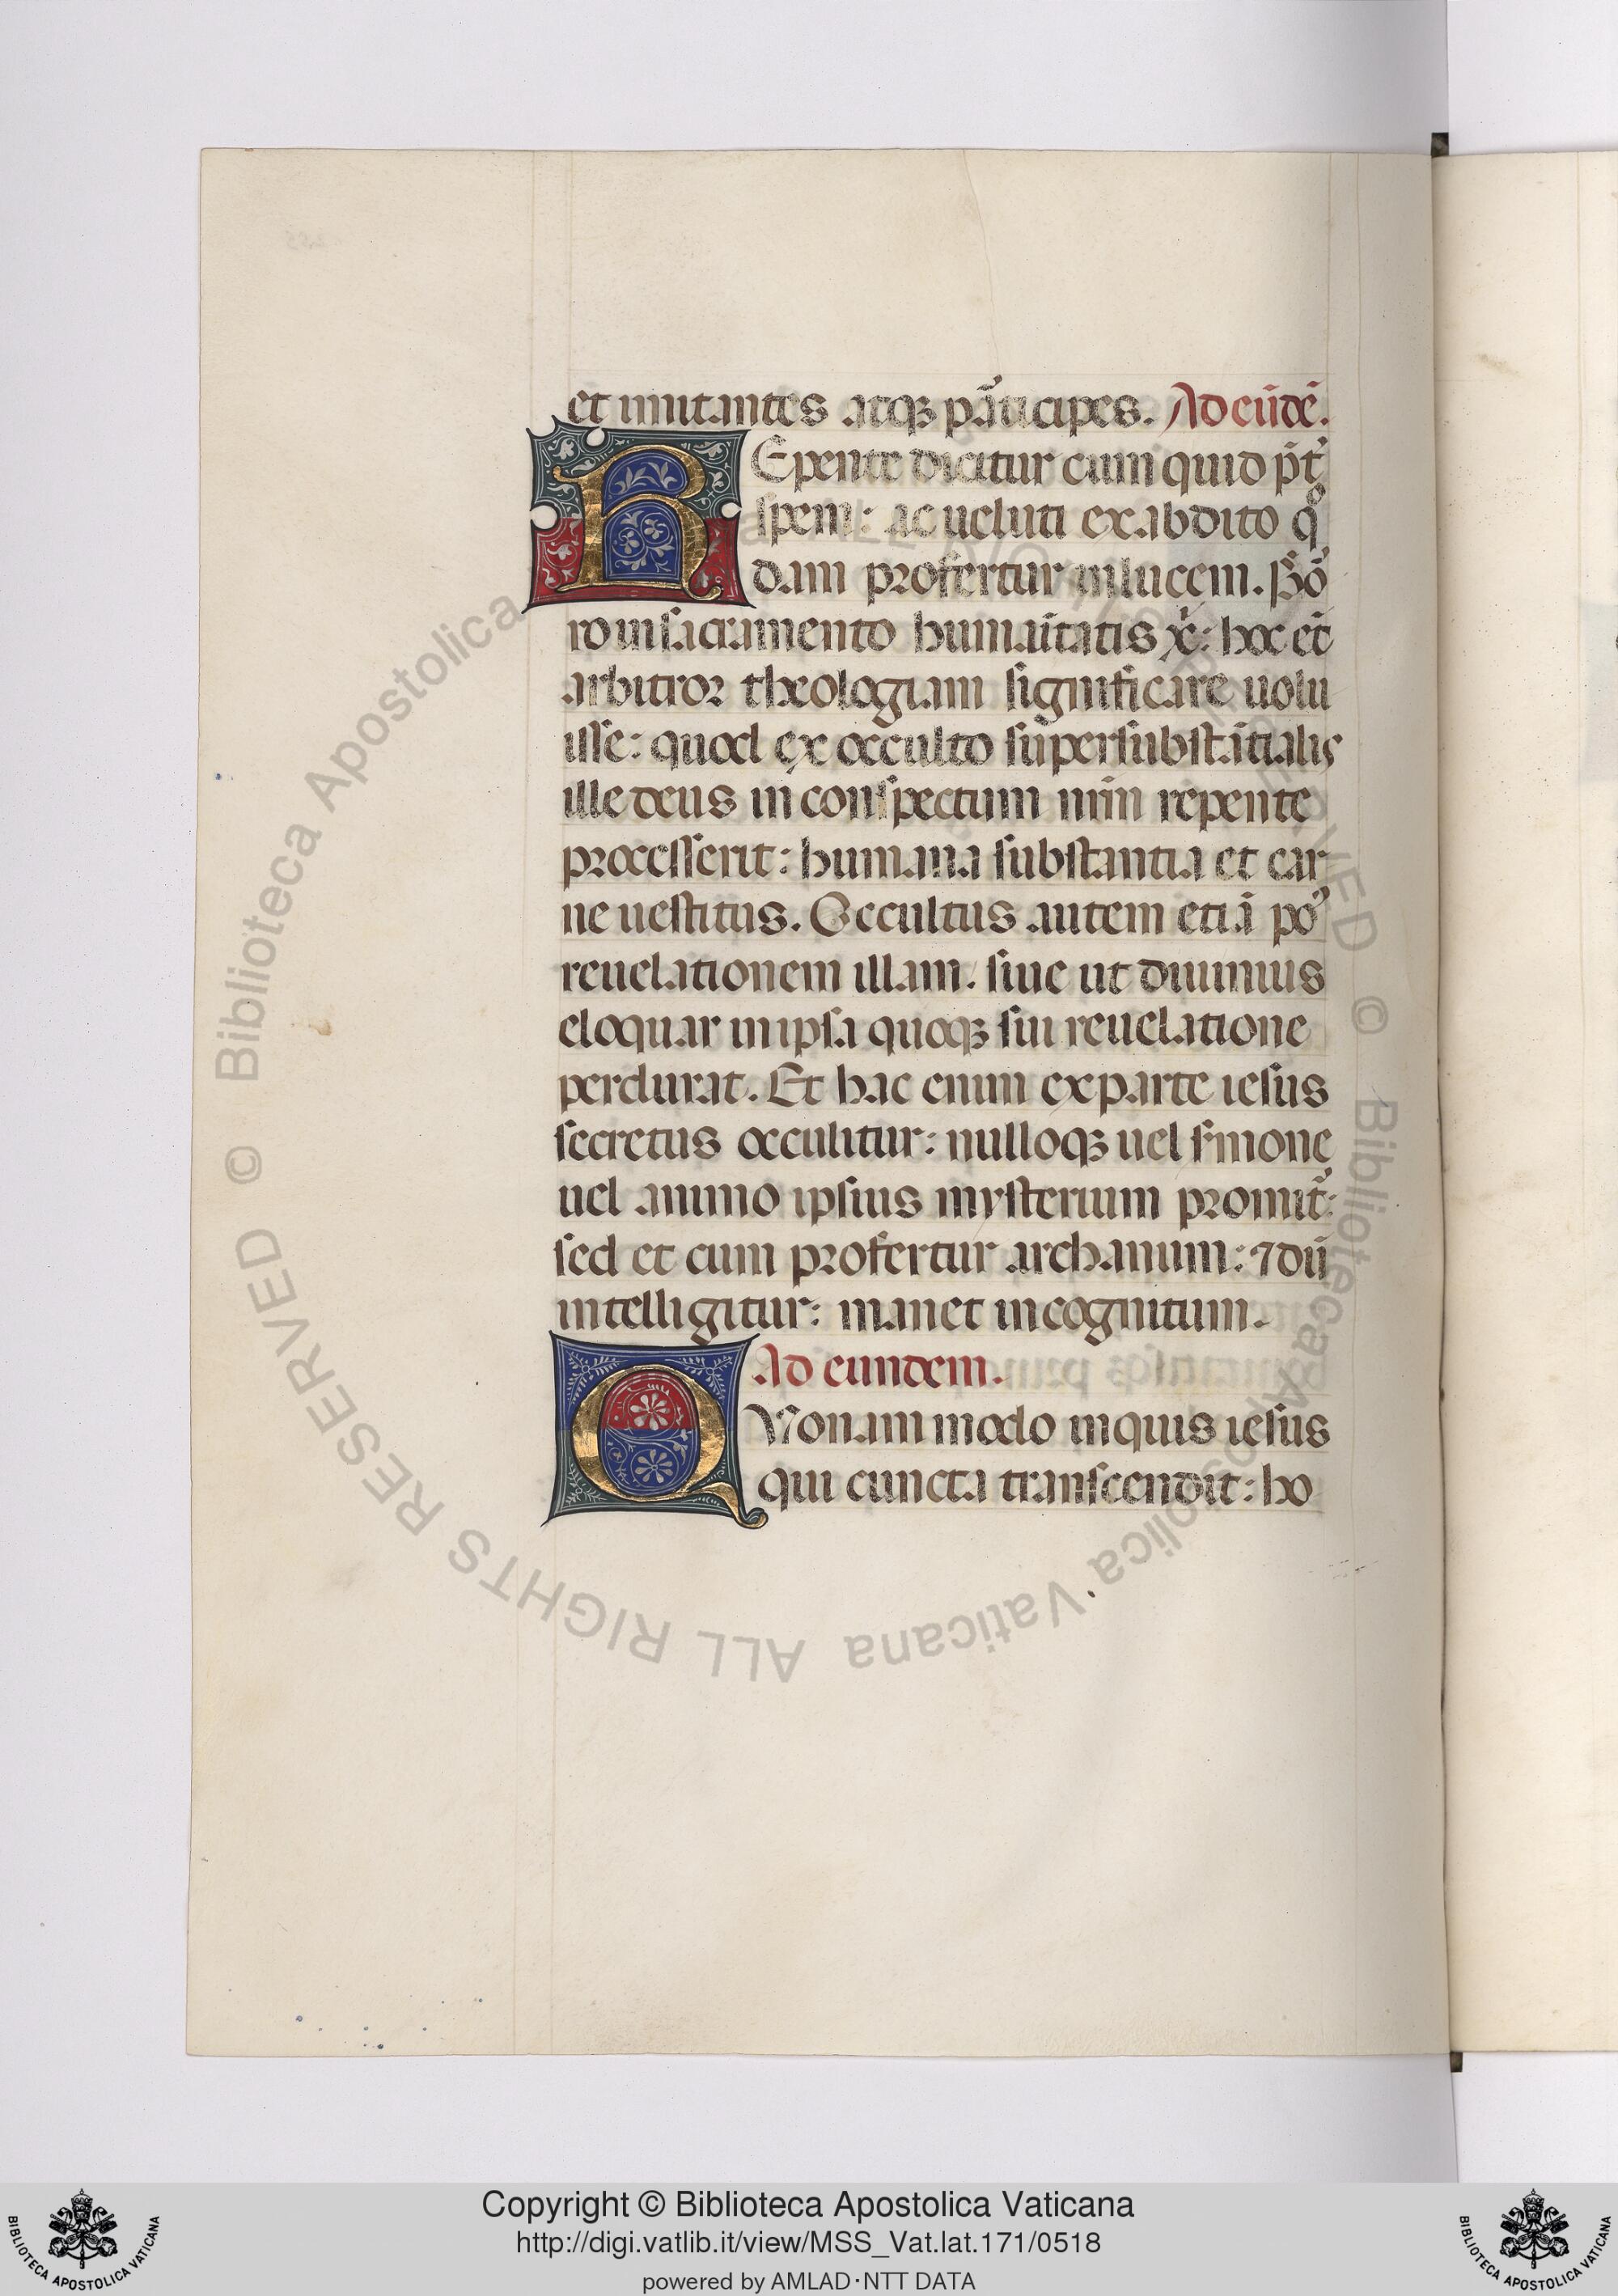 et imitantes atqꝫ pāticipes. Ad eūdē.
REpente dicitur cum quid p̄t᷑
spem: ac ueluti ex abdito qͦ
dam profertur in lucem. Hoͨ
ro in sacramento humaītatis xp̄i: hoc et̄
arbitror theologiam significare uolu
isse: quod ex occulto supersubstātialis
ille deus in conspectum nr̄m repente
processerit: humana substantia et car
ne uestitus. Occultus autem etiā po᷑
reuelationem illam. siue ut diuinius
eloquar in ipsa quoqꝫ sui reuelatione
perdurat. Et hac enim ex parte iesus
secretus occulitur: nulloqꝫ uel s̄mone
uel animo ipsius mysterium promit᷑:
sed et cum profertur archanum: ⁊ dū
intelligitur: manet incognitum.
Ad eundem.
QVonam modo inquis iesus
qui cuncta transcendit: ho
© Biblioteca Apostolica Vaticana ALL RIGHTS RESERVED
Copyright © Biblioteca Apostolica Vaticana
http://digi.vatlib.it/view/MSS_Vat.lat.171/0518
powered by AMLAD·NTT DATA
BIBLIOTECA APOSTOLICA VATICANA
BIBLIOTECA APOSTOLICA VATICANA